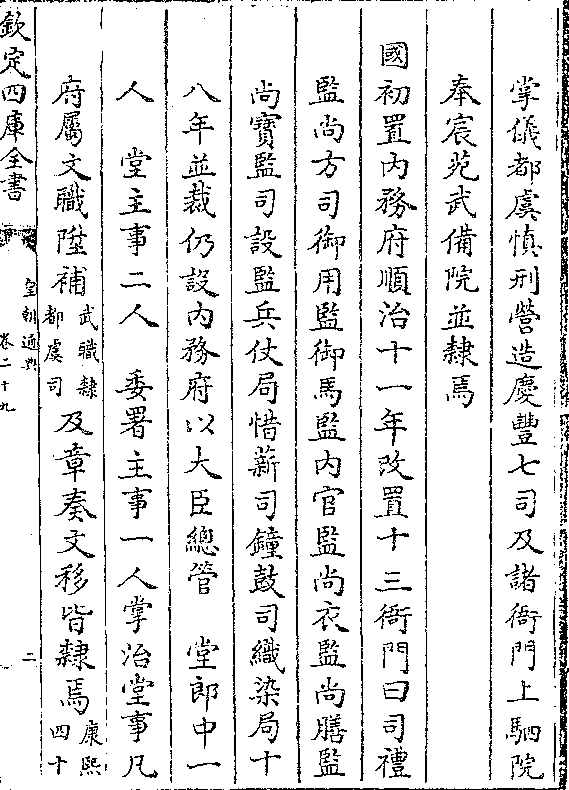 掌儀都虞慎刑營造慶豐七司及諸衙門上駟院
奉宸苑武備院並隸焉
國初置内務府順治十一年改置十三衙門曰司禮
監尚方司御用監御馬監内官監尚衣監尚膳監
尚寶監司設監兵仗局惜薪司鐘鼓司織染局十
八年並裁仍設内務府以大臣總管　堂郎中一
人　堂主事二人　委署主事一人掌治堂事凡
府屬文職陞補武職隸都虞司及章奏文移皆隸焉康熙四十
欽定四庫全書
皇朝通典
卷二十九
二